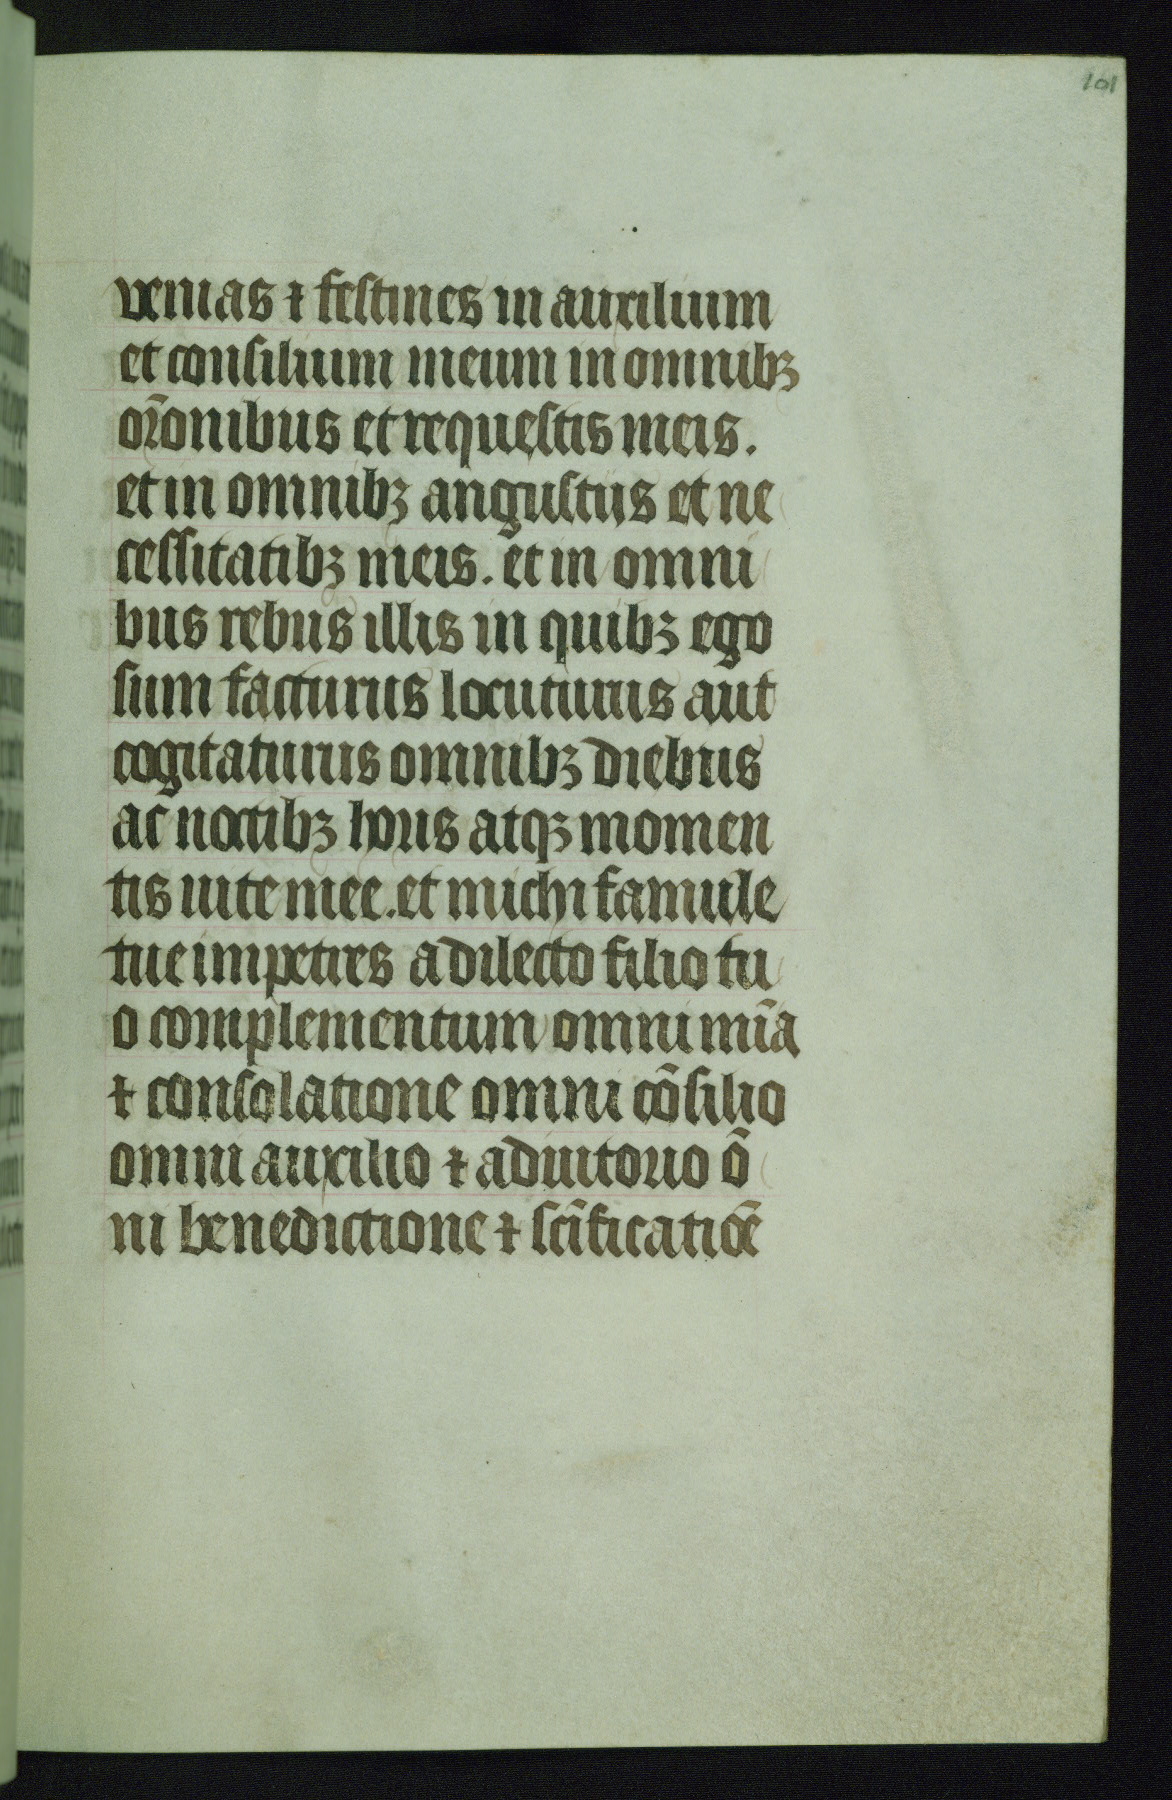 101
venias ⁊ festines in auxilium
et consilium meum in omnibꝫ
or̄onibus et requestis meis.
et in omnibꝫ angustiis et ne
cessitatibꝫ meis. et in omni
bus rebus illis in quibꝫ ego
sum facturus locuturus aut
cogitaturus omnibꝫ diebus
ac noctibꝫ horis atqꝫ momen
tis uite mee. et michi famule
tue impetres a dilecto filio tu
o complementum omni mīa
⁊ consolatione omni cōsilio
omni auxilio ⁊ adiutorio ō
ni benedictione ⁊ scīficatiōe